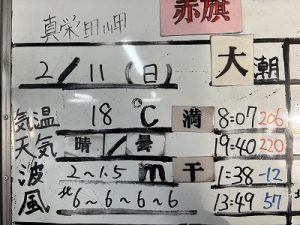 赤旗
真栄田岬
2/11(日) 大潮
気温 18℃ 満 8:07 206
天気 晴/曇 19:40 220
波 2~1.5m 干 1:38 -12
風 北6~6~6~6 13:49 57